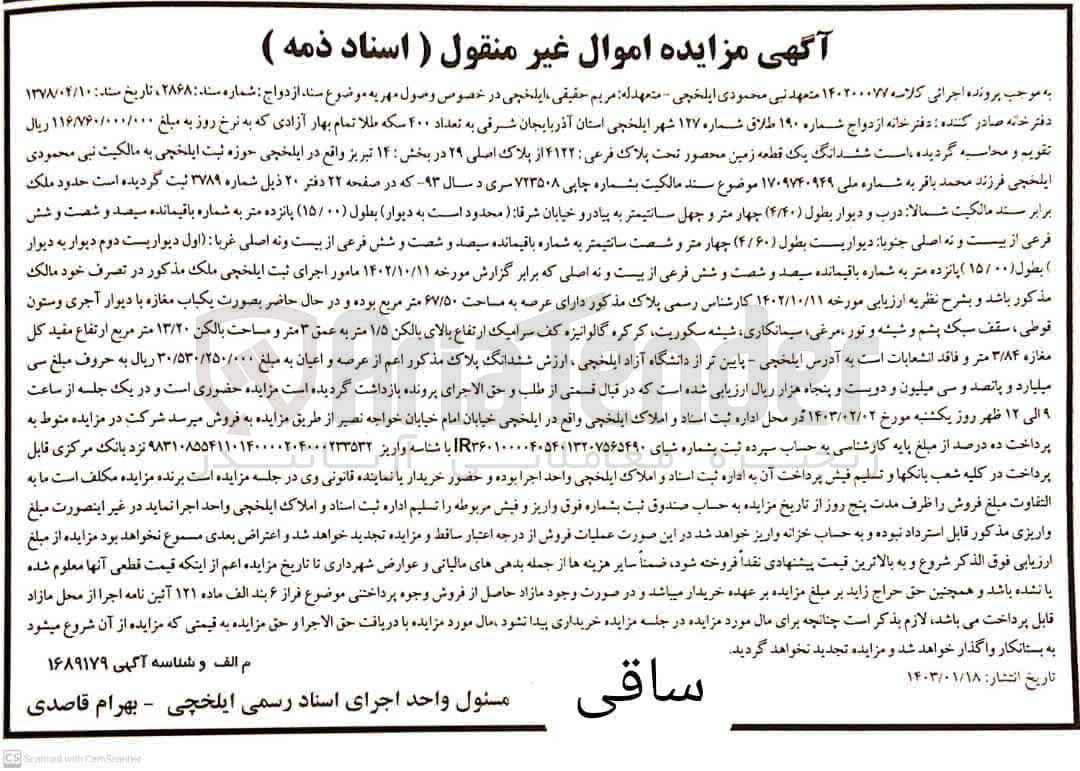 آگهی مزایده اموال غیر منقول ( اسناد ذمه )
به موجب پرونده اجرائی کلاسه ۱۴۰۲۰۰۰۷۷ متعهد نبی محمودی ایلخچی - متعهدله: مریم حقیقی ،ایلخچی در خصوص وصول مهریه موضوع سند ازدواج : شماره سند: ۲۸۶۸ ، تاریخ سند: ۱۳۷۸/۰۴/۱۰
دفترخانه صادر کننده : دفترخانه ازدواج شماره ۱۹۰ طلاق شماره ۱۲۷ شهر ایلخچی استان آذربایجان شرقی به تعداد ۴۰۰ سکه طلا تمام بهار آزادی که به نرخ روز به مبلغ ۱۱۶/۷۶۰/۰۰۰/۰۰۰ ریال
تقویم و محاسبه گردیده ،است ششدانگ یک قطعه زمین محصور تحت پلاک فرعی : ۴۱۲۲ از پلاک اصلی ۲۹ در بخش : ۱۴ تبریز واقع در ایلخچی حوزه ثبت ایلخچی به مالکیت نبی محمودی
ایلخچی فرزند محمد باقر به شماره ملی ۱۷۰۹۷۴۰۹۴۹ موضوع سند مالکیت بشماره چاپی ۷۲۳۵۰۸ سری د سال ۹۳- که در صفحه ۲۲ دفتر ۲۰ ذیل شماره ۳۷۸۹ ثبت گردیده است حدود ملک
برابر سند مالکیت شمالا: درب و دیوار بطول (۴/۴۰) چهار متر و چهل سانتیمتر به پیادرو خیابان شرقا: ( محدود است به دیوار) بطول (۱۵/۰۰) پانزده متر به شماره باقیمانده سیصد و شصت و شش
فرعی از بیست و نه اصلی جنوبا: دیواریست بطول (۴/۶۰) چهار متر و شصت سانتیمتر به شماره باقیمانده سیصد و شصت و شش فرعی از بیست ونه اصلی غربا : (اول دیواریست دوم دیوار به دیوار
) بطول(۱۵/۰۰ )پانزده متر به شماره باقیمانده سیصد و شصت و شش فرعی از بیست و نه اصلی که برابر گزارش مورخه ۱۴۰۲/۱۰/۱۱ مامور اجرای ثبت ایلخچی ملک مذکور در تصرف خود مالک
مذکور باشد و بشرح نظریه ارزیابی مورخه ۱۴۰۲/۱۰/۱۱ کارشناس رسمی پلاک مذکور دارای عرصه به مساحت ۶۷/۵۰ متر مربع بوده و در حال حاضر بصورت یکباب مغازه با دیوار آجری وستون
قوطی ، سقف سبک پشم و شیشه و تور ،مرغی، سیمانکاری، شیشه سکوریت، کرکره گالوانیزه کف سرامیک ارتفاع بالای بالکن ۱/۵ متر به عمق ۳ متر و مساحت بالکن ۱۳/۲۰ متر مربع ارتفاع مفید کل
مغازه ۳/۸۴ متر و فاقد انشعابات است به آدرس ایلخچی - پایین تر از دانشگاه آزاد ایلخچی ، ارزش ششدانگ پلاک مذکور اعم از عرصه و اعیان به مبلغ ۳۰/۵۳۰/۲۵۰/۰۰۰ ریال به حروف مبلغ سی
میلیارد و پانصد و سی میلیون و دویست و پنجاه هزار ریال ارزیابی شده است که در قبال قسمتی از طلب و حق الاجرای پرونده بازداشت گردیده است مزایده حضوری است و در یک جلسه از ساعت
۹ الی ۱۲ ظهر روز یکشنبه مورخ ۱۴۰۳/۰۲/۰۲ در محل اداره ثبت اسناد و املاک ایلخچی واقع در ایلخچی خیابان امام خیابان خواجه نصیر از طریق مزایده به فروش میرسد شرکت در مزایده منوط به
پرداخت ده درصد از مبلغ پایه کارشناسی به حساب سپرده ثبت بشماره شبای IR۳۶۰۱۰۰۰۰۴۰۵۴۰۱۳۲۰۷۵۶۵۴۹۰ با شناسه واریز ۹۸۳۱۰۸۵۵۴۱۱۰۱۴۰۰۰۰۲۰۴۰۰۰۲۳۳۵۳۲ نزد بانک مرکزی قابل
پرداخت در کلیه شعب بانکها و تسلیم فیش پرداخت آن به اداره ثبت اسناد و املاک ایلخچی واحد اجرا بوده و حضور خریدار یا نماینده قانونی وی در جلسه مزایده است برنده مزایده مکلف است ما به
التفاوت مبلغ فروش را ظرف مدت پنج روز از تاریخ مزایده به حساب صندوق ثبت بشماره فوق واریز و فیش مربوطه را تسلیم اداره ثبت اسناد و املاک ایلخچی واحد اجرا نماید در غیر اینصورت مبلغ
واریزی مذکور قابل استرداد نبوده و به حساب خزانه واریز خواهد شد در این صورت عملیات فروش از درجه اعتبار ساقط و مزایده تجدید خواهد شد و اعتراض بعدی مسموع نخواهد بود مزایده از مبلغ
ارزیابی فوق الذکر شروع و به بالاترین قیمت پیشنهادی نقداً فروخته شود، ضمناً سایر هزینه ها از جمله بدهی های مالیاتی و عوارض شهرداری تا تاریخ مزایده اعم از اینکه قیمت قطعی آنها معلوم شده
یا نشده باشد و همچنین حق حراج زاید بر مبلغ مزایده بر عهده خریدار میباشد و در صورت وجود مازاد حاصل از فروش وجوه پرداختنی موضوع فراز ۶ بند الف ماده ۱۲۱ آئین نامه اجرا از محل مازاد
قابل پرداخت می باشد، لازم بذکر است چنانچه برای مال مورد مزایده در جلسه مزایده خریداری پیدا نشود ،مال مورد مزایده با دریافت حق الاجرا و حق مزایده به قیمتی که مزایده از آن شروع میشود
به بستانکار واگذار خواهد شد و مزایده تجدید نخواهد گردید.
م الف و شناسه آگهی ۱۶۸۹۱۷۹
تاریخ انتشار: ۱۴۰۳/۰۱/۱۸
ساقی
مسئول واحد اجرای اسناد رسمی ایلخچی - بهرام قاصدی
AriaTender
CS Scanned with CamScanner